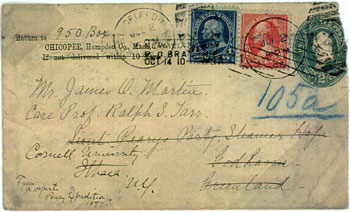 Return to 950 Box
CHICOPEE, Hampden Co., Mass.
If not delivered within 10
OCT 4 10
105a
Mr. James O. Martin,
Care Prof. Ralph S. Tarr,
Lieut Pearys Party, Steamer Hope
Cornell University
Godhavn
Ithaca
N.Y.
Greenland
From
Peary Expedition